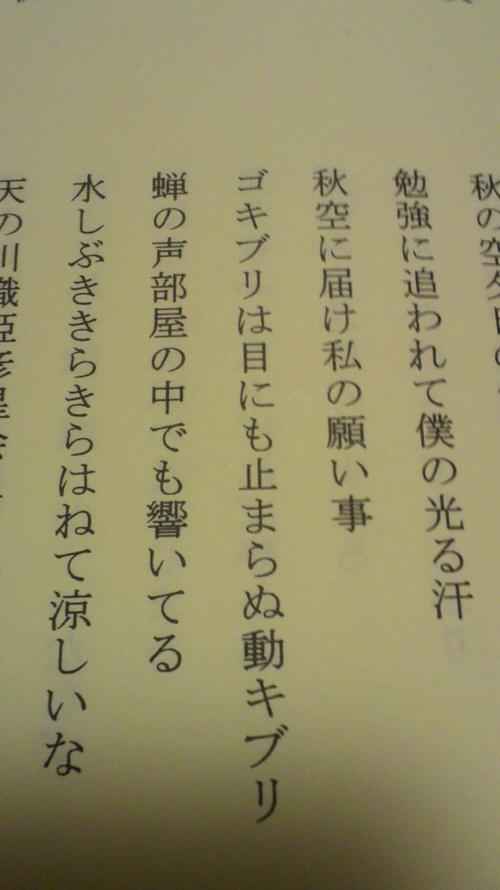 秋の空夕日の
勉強に追われて僕の光る汗
秋空に届け私の願い事
ゴキブリは目にも止まらぬ動キブリ
蝉の声部屋の中でも響いてる
水しぶききらきらはねて涼しいな
天の川織姫彦星